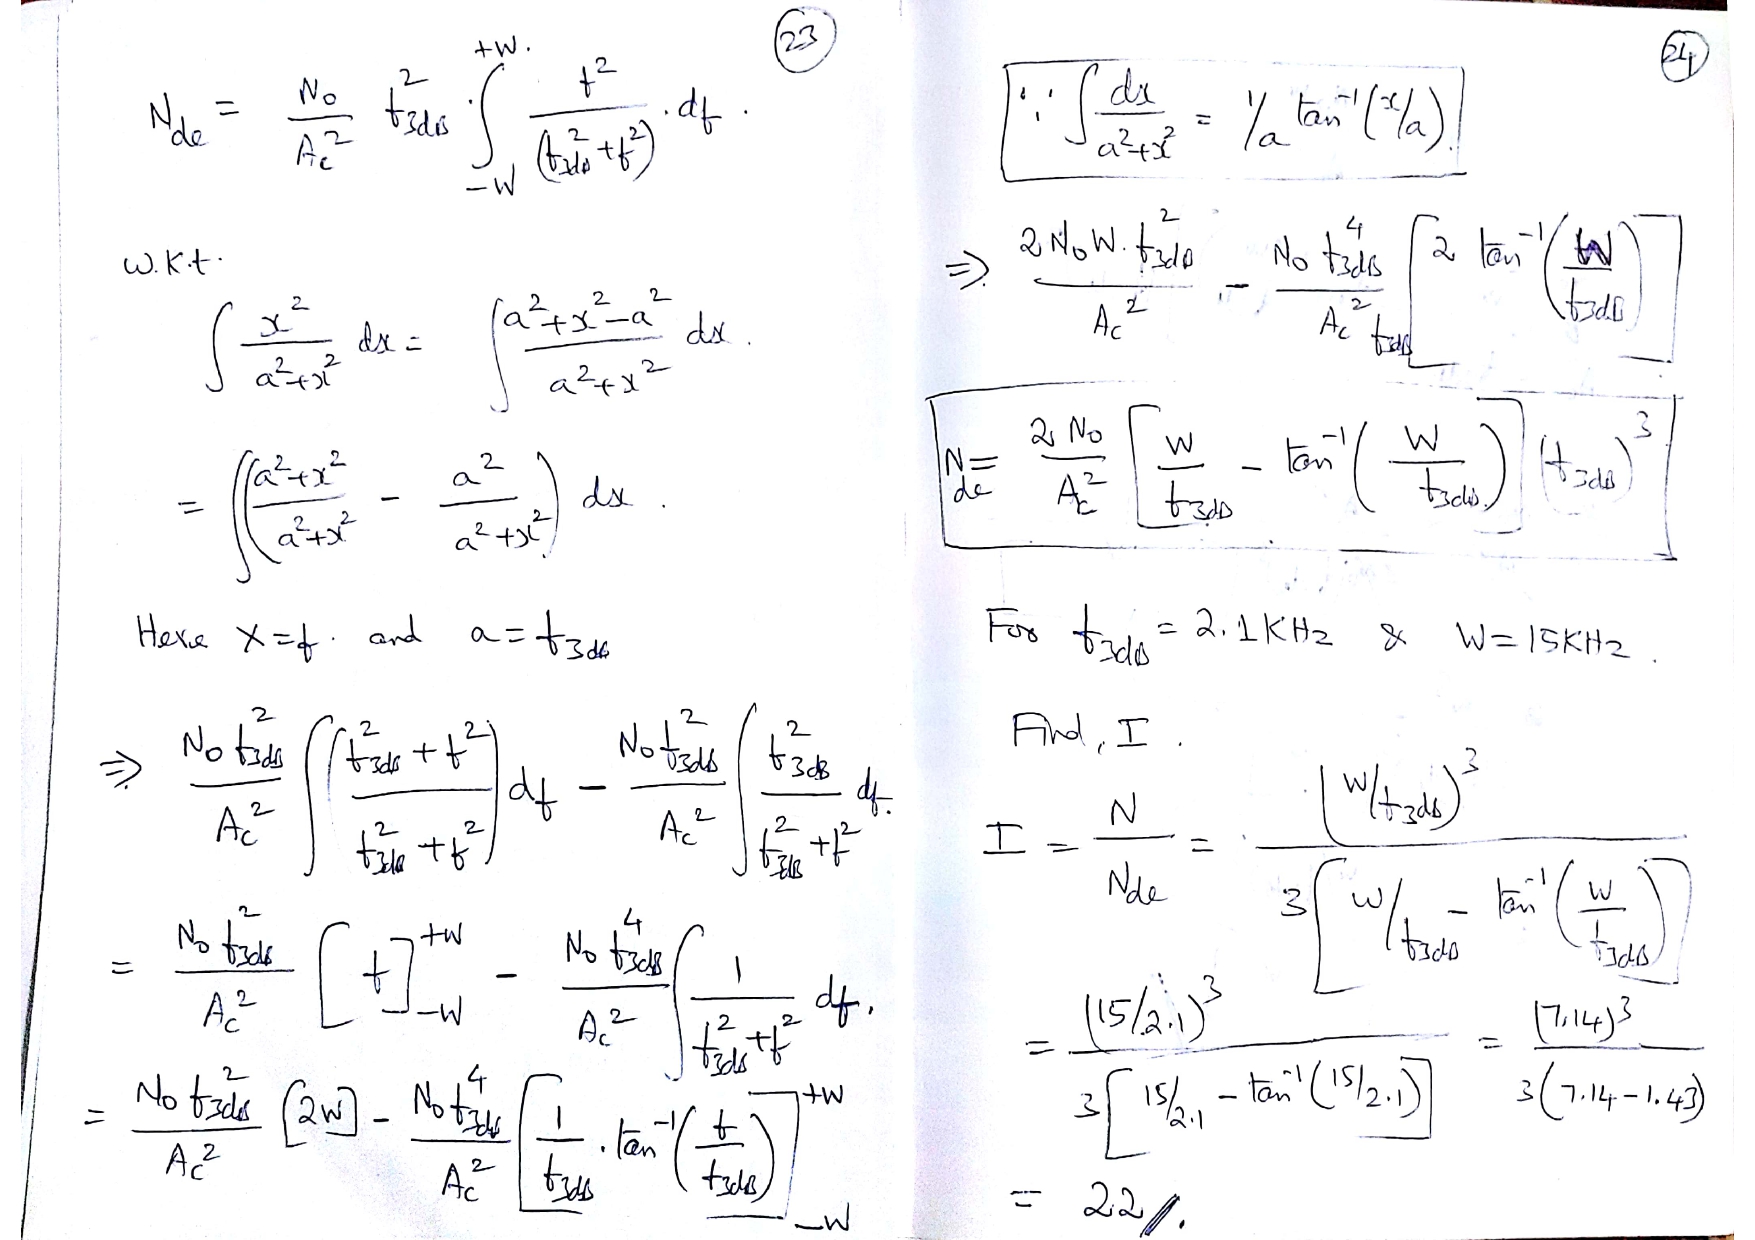 23
N_de = N_o/A_c^2 f_3dB^2 . ∫_{-W}^{+W} f^2/(f_3dB^2 + f^2) . df .
W.K.t.
∫ x^2/(a^2+x^2) dx = ∫ (a^2+x^2-a^2)/(a^2+x^2) dx .
= ∫ ((a^2+x^2)/(a^2+x^2) - a^2/(a^2+x^2)) dx .
Here x=f . and a = f_3dB
⇒ N_o f_3dB^2/A_c^2 ∫ ((f_3dB^2 + f^2)/(f_3dB^2 + f^2)) df - N_o f_3dB^2/A_c^2 ∫ f_3dB^2/(f_3dB^2 + f^2) df.
= N_o f_3dB^2/A_c^2 [f]_{-W}^{+W} - N_o f_3dB^4/A_c^2 ∫ 1/(f_3dB^2 + f^2) df.
= N_o f_3dB^2/A_c^2 [2W] - N_o f_3dB^4/A_c^2 [1/f_3dB . tan^-1(f/f_3dB)]_{-W}^{+W}
24
∵ ∫ dx/(a^2+x^2) = 1/a tan^-1(x/a).
⇒ 2 N_o W. f_3dB^2/A_c^2 - N_o f_3dB^4/(A_c^2 f_3dB) [2 tan^-1(W/f_3dB)]
N_de = 2 N_o/A_c^2 [W/f_3dB - tan^-1(W/f_3dB)] (f_3dB)^3
For f_3dB = 2.1KHz & W=15KHz .
Find, I .
I = N/N_de = (W/f_3dB)^3/(3[W/f_3dB - tan^-1(W/f_3dB)])
= (15/2.1)^3/(3[15/2.1 - tan^-1(15/2.1)]) = (7.14)^3/(3(7.14-1.43))
= 22 //.